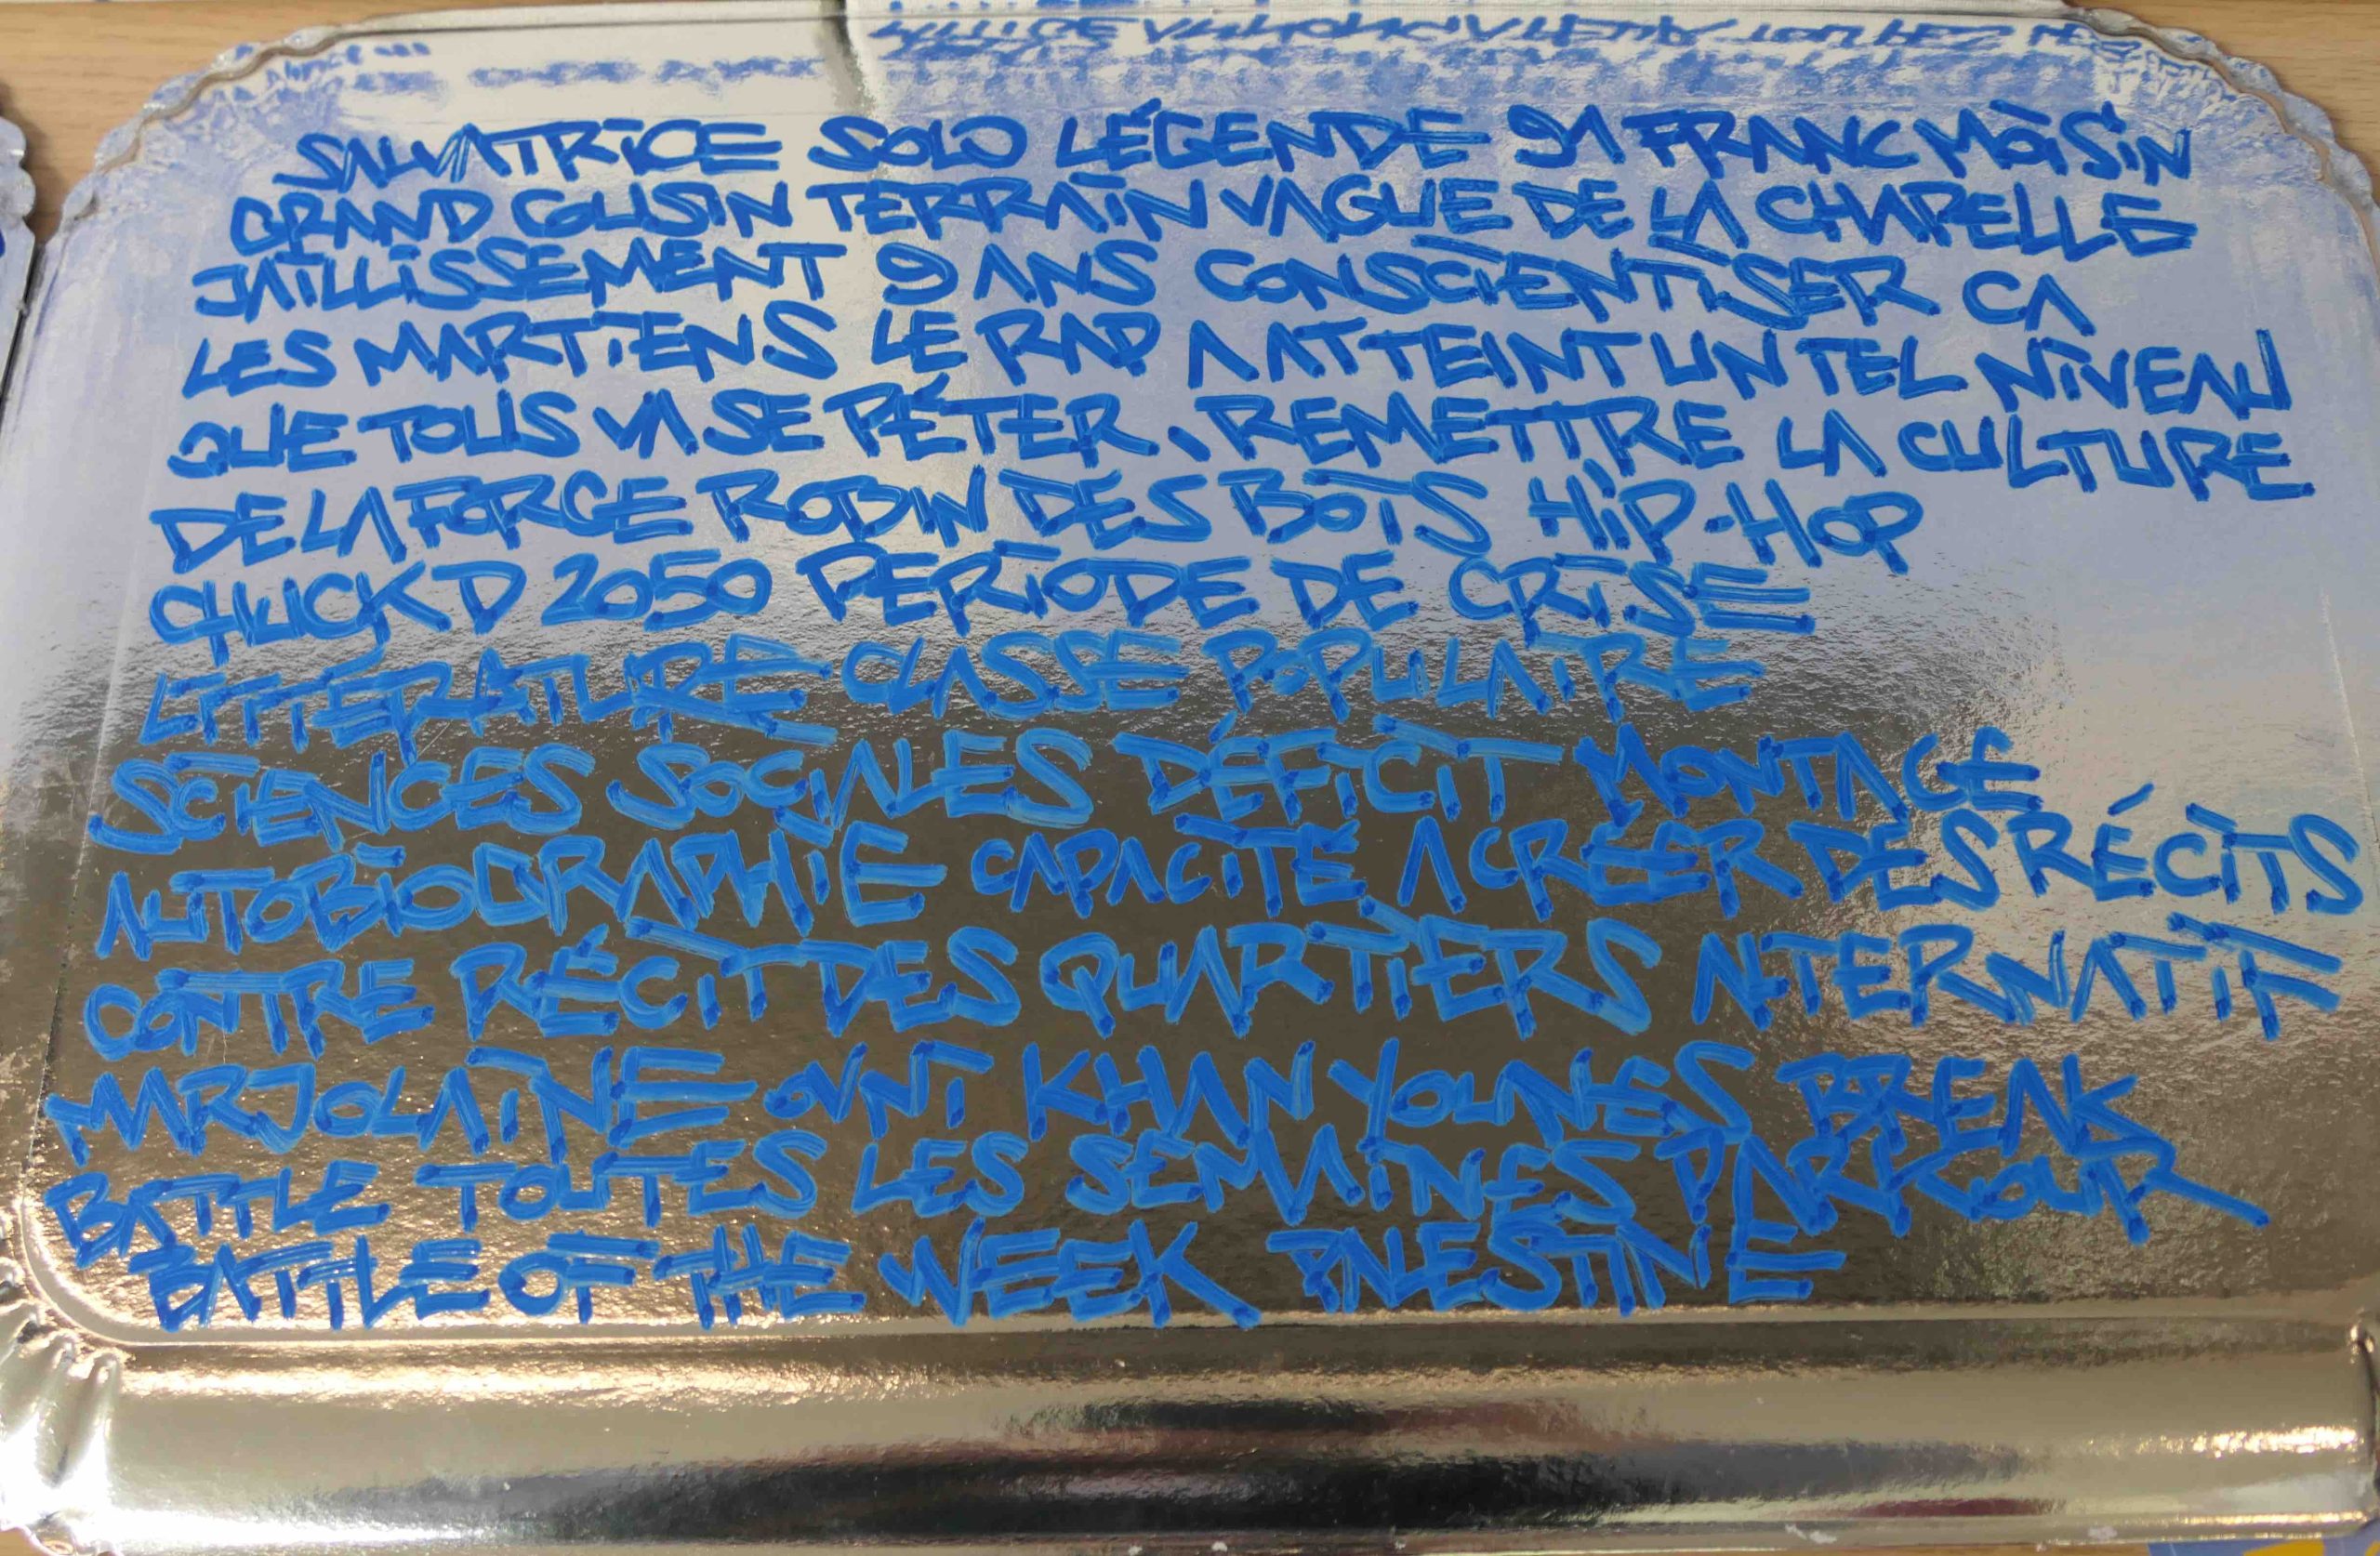 SALVATRICE SOLO LÉGENDE 91 FRANC MOISIN
GRAND COUSIN TERRAIN VAGUE DE LA CHAPELLE
JAILLISSEMENT 9 ANS CONSCIENTISER CA
LES MARTIENS LE RAP A ATTEINT UN TEL NIVEAU
QUE TOUS VA SE PÉTER. REMETTRE LA CULTURE
DE LA FORCE ROBIN DES BOIS HIP-HOP
CHUCK D 2050 PERIODE DE CRISE
LITTÉRATURE CLASSE POPULAIRE
SCIENCES SOCIALES DÉFICIT MONTAGE
AUTOBIOGRAPHIE CAPACITÉ A CRÉER DES RÉCITS
CONTRE RÉCIT DES QUARTIERS ALTERNATIF
MARJOLAINE OVNI KHAN YOUNES BREAK
BATTLE TOUTES LES SEMAINES PARKCOUR
BATTLE OF THE WEEK PALESTINE